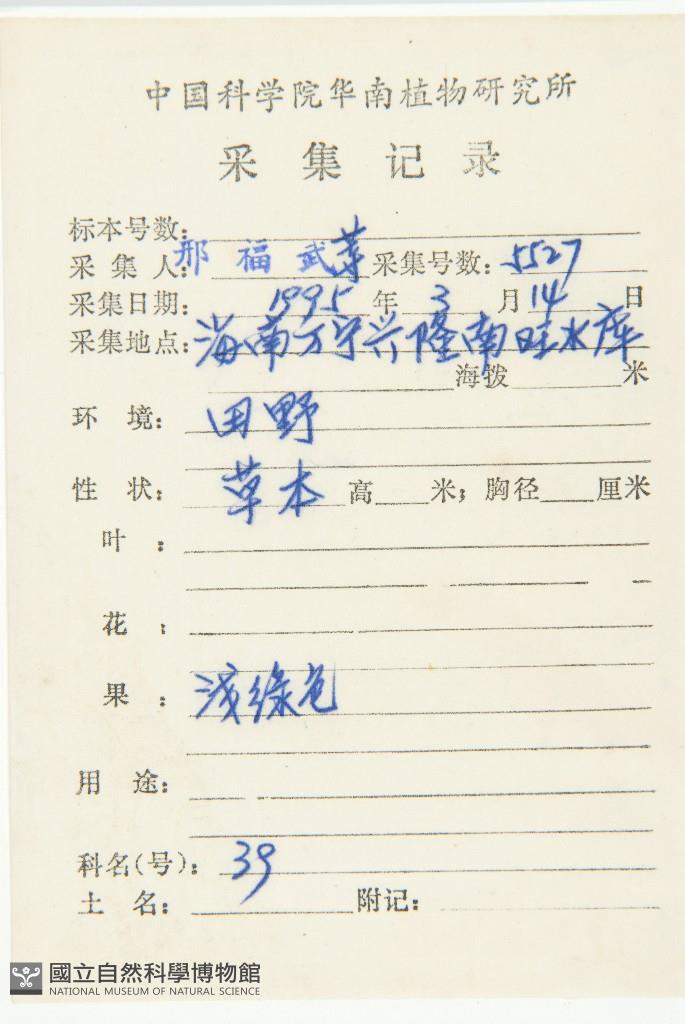 中国科学院华南植物研究所
采集记录
标本号数：
采集人：邢福武等 采集号数：5527
采集日期：1995年3月14日
采集地点：海南万宁兴隆南旺水库
海拨 米
环境：田野
性状：草本 高 米；胸径 厘米
叶：
花：
果：浅綠色
用途：
科名(号)：39
土名： 附记：
國立自然科學博物館
NATIONAL MUSEUM OF NATURAL SCIENCE